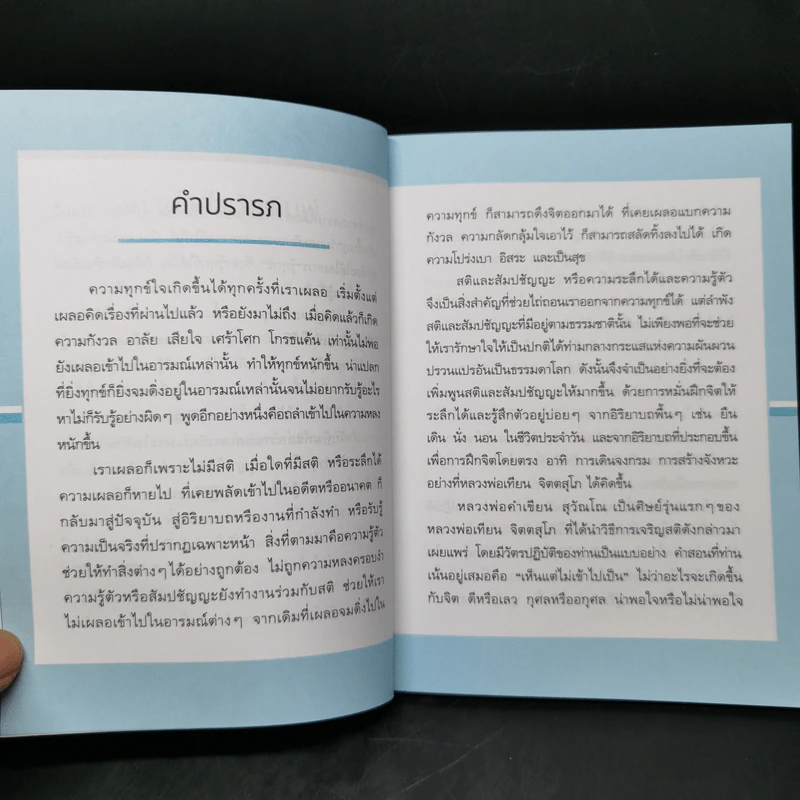 คำปรารภ
ความทุกข์ใจเกิดขึ้นได้ทุกครั้งที่เราเผลอ เริ่มตั้งแต่
เผลอคิดเรื่องที่ผ่านไปแล้ว หรือยังมาไม่ถึง เมื่อคิดแล้วก็เกิด
ความกังวล อาลัย เสียใจ เศร้าโศก โกรธแค้น เท่านั้นไม่พอ
ยังเผลอเข้าไปในอารมณ์เหล่านั้น ทำให้ทุกข์หนักขึ้น น่าแปลก
ที่ยิ่งทุกข์ก็ยิ่งจมดิ่งอยู่ในอารมณ์เหล่านั้นจนไม่อยากรับรู้อะไร
หาไม่ก็รับรู้อย่างผิดๆ พูดอีกอย่างหนึ่งคือถลำเข้าไปในความหลง
หนักขึ้น
เราเผลอก็เพราะไม่มีสติ เมื่อใดที่มีสติ หรือระลึกได้
ความเผลอก็หายไป ที่เคยพลัดเข้าไปในอดีตหรืออนาคต ก็
กลับมาสู่ปัจจุบัน สู่อิริยาบถหรืองานที่กำลังทำ หรือรับรู้
ความเป็นจริงที่ปรากฏเฉพาะหน้า สิ่งที่ตามมาคือความรู้ตัว
ช่วยให้ทำสิ่งต่างๆได้อย่างถูกต้อง ไม่ถูกความหลงครอบงำ
ความรู้ตัวหรือสัมปชัญญะยังทำงานร่วมกับสติ ช่วยให้เรา
ไม่เผลอเข้าไปในอารมณ์ต่างๆ จากเดิมที่เผลอจมดิ่งไปใน
ความทุกข์ ก็สามารถดึงจิตออกมาได้ ที่เคยเผลอแบกความ
กังวล ความกลัดกลุ้มใจเอาไว้ ก็สามารถสลัดทิ้งลงไปได้ เกิด
ความโปร่งเบา อิสระ และเป็นสุข
สติและสัมปชัญญะ หรือความระลึกได้และความรู้ตัว
จึงเป็นสิ่งสำคัญที่ช่วยไถ่ถอนเราออกจากความทุกข์ได้ แต่ลำพัง
สติและสัมปชัญญะที่มีอยู่ตามธรรมชาตินั้น ไม่เพียงพอที่จะช่วย
ให้เรารักษาใจให้เป็นปกติได้ท่ามกลางกระแสแห่งความผันผวน
ปรวนแปรอันเป็นธรรมดาโลก ดังนั้นจึงจำเป็นอย่างยิ่งที่จะต้อง
เพิ่มพูนสติและสัมปชัญญะให้มากขึ้น ด้วยการหมั่นฝึกจิตให้
ระลึกได้และรู้สึกตัวอยู่บ่อยๆ จากอิริยาบถพื้นๆ เช่น ยืน
เดิน นั่ง นอน ในชีวิตประจำวัน และจากอิริยาบถที่ประกอบขึ้น
เพื่อการฝึกจิตโดยตรง อาทิ การเดินจงกรม การสร้างจังหวะ
อย่างที่หลวงพ่อเทียน จิตตสุโภ ได้คิดขึ้น
หลวงพ่อคำเขียน สุวัณโณ เป็นศิษย์รุ่นแรกๆของ
หลวงพ่อเทียน จิตตสุโภ ที่ได้นำวิธีการเจริญสติดังกล่าวมา
เผยแพร่ โดยมีวัตรปฏิบัติของท่านเป็นแบบอย่าง คำสอนที่ท่าน
เน้นอยู่เสมอคือ “เห็นแต่ไม่เข้าไปเป็น” ไม่ว่าอะไรจะเกิดขึ้น
กับจิต ดีหรือเลว กุศลหรืออกุศล น่าพอใจหรือไม่น่าพอใจ